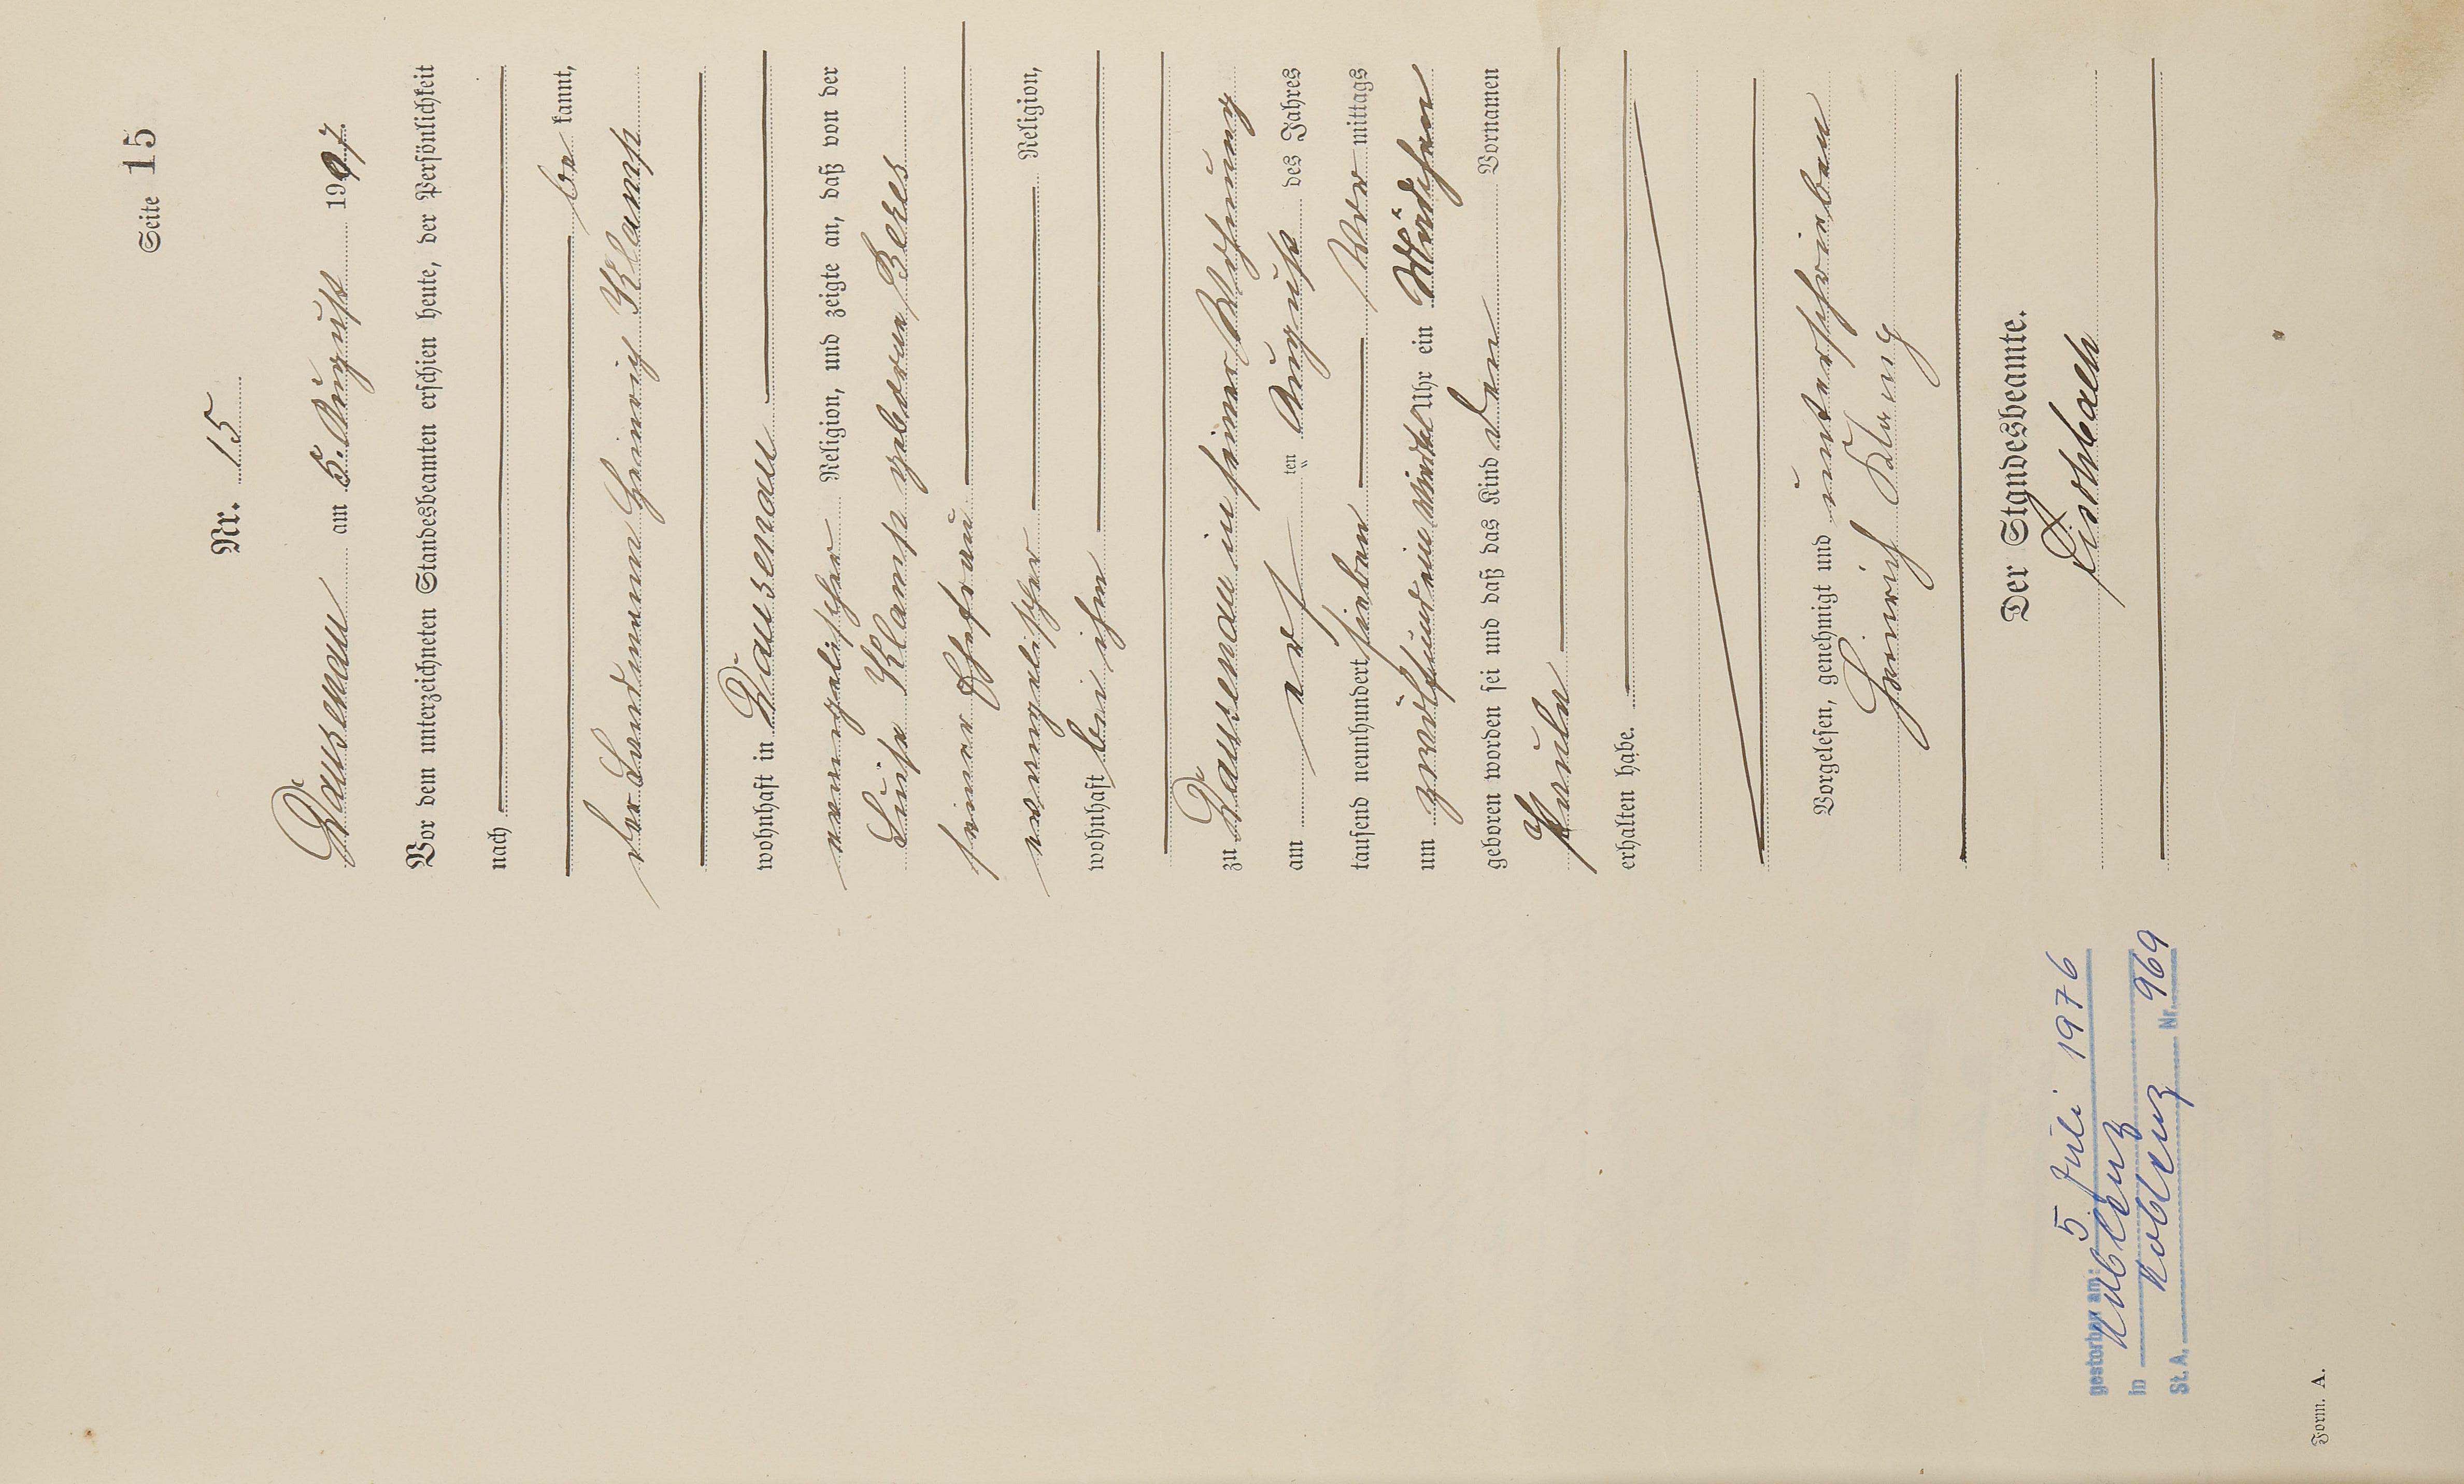 Seite 15
Nr. 15
Dausenau am 5. August 1907.
Vor dem unterzeichneten Standesbeamten erschien heute, der Persönlichkeit
nach
be kannt,
der Landmann Heinrich Klamp
wohnhaft in Dausenau
evangelischer Religion, und zeigte an, daß von der
Luise Klamp geborene Beres
seiner Ehefrau
evangelischer Religion,
wohnhaft bei ihm
zu Dausenau in seiner Wohnung
am ten August des Jahres
tausend neunhundert sieben Vor mittags
um zwölfeinviertel Uhr ein Mädchen
geboren worden sei und daß das Kind den Vornamen
Paula
erhalten habe.
Vorgelesen, genehmigt und unterschrieben
Heinrich Klamp
Der Standesbeamte.
gestorben am: 5 Juli 1976
in Koblenz
St. A. Koblenz Nr. 969
Form. A.